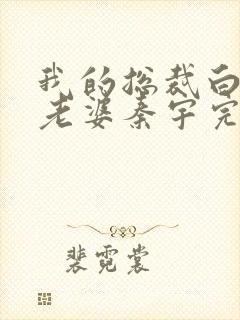 我的总裁白
老婆秦宇完
裴霓裳